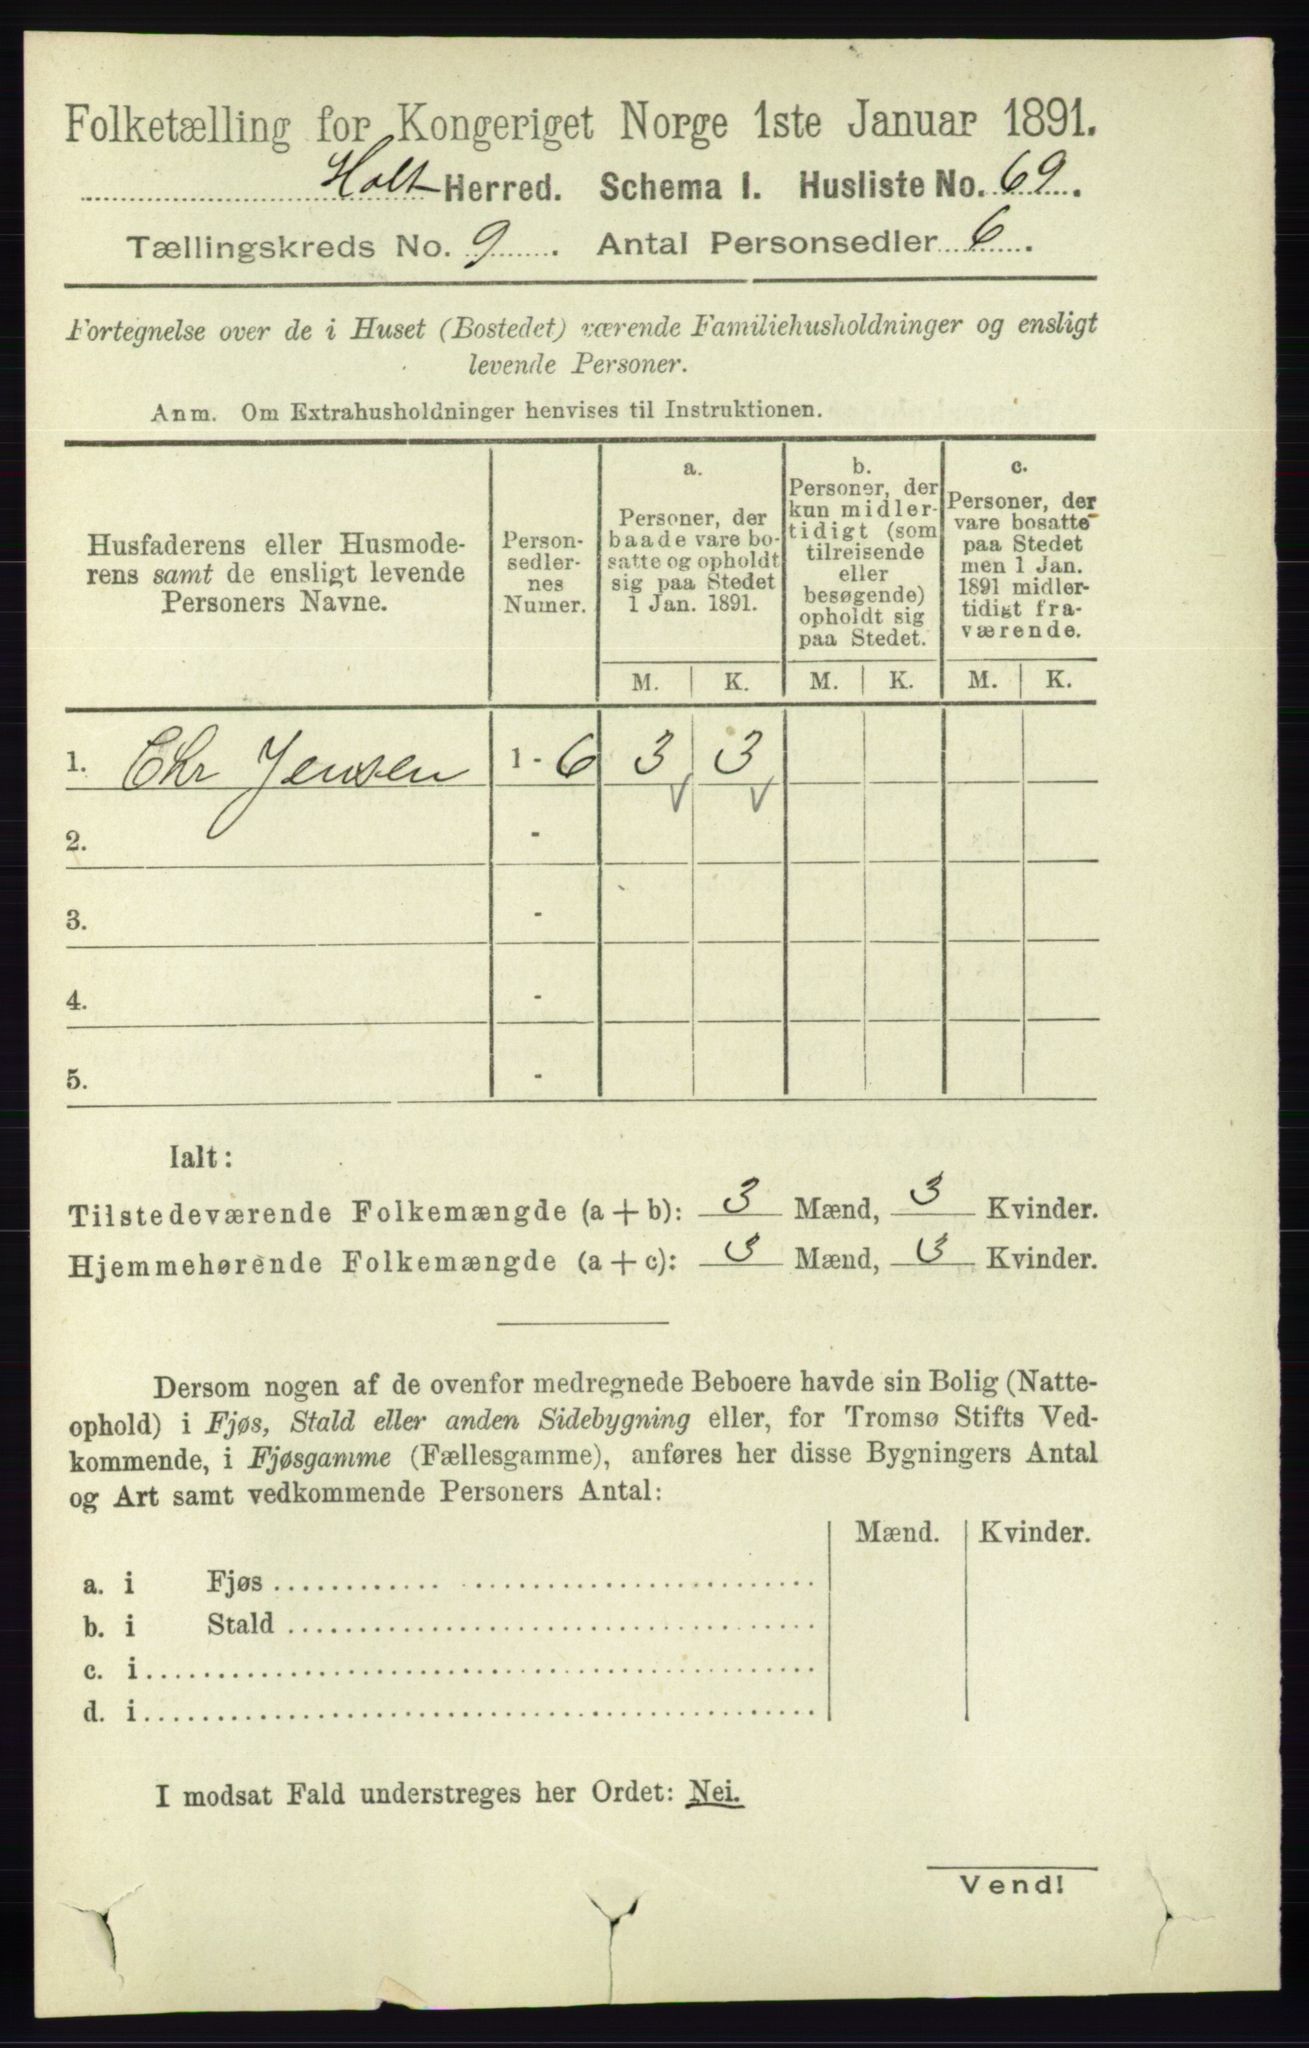 Folketælling for Kongeriget Norge 1ste Januar 1891.
Holt Herred. Schema I. Husliste No. 69.
Tællingskreds No. 9. Antal Personsedler 6.
Fortegnelse over de i Huset (Bostedet) værende Familiehusholdninger og ensligt
levende Personer.
Anm. Om Extrahusholdninger henvises til Instruktionen.
Husfaderens eller Husmode-
rens samt de ensligt levende
Personers Navne.
Person-
sedler-
nes
Numer.
a.
Personer, der
baade vare bo-
satte og opholdt
sig paa Stedet
1 Jan. 1891.
b.
Personer, der
kun midler-
tidigt (som
tilreisende
eller
besøgende)
opholdt sig
paa Stedet.
c.
Personer, der
vare bosatte
paa Stedet
men 1 Jan.
1891 midler-
tidigt fra-
værende.
M. K. M. K. M. K.
1. Chr Jensen 1 - 6 3 3
2. -
3. -
4. -
5. -
Ialt:
Tilstedeværende Folkemængde (a + b): 3 Mænd, 3 Kvinder.
Hjemmehørende Folkemængde (a + c): 3 Mænd, 3 Kvinder.
Dersom nogen af de ovenfor medregnede Beboere havde sin Bolig (Natte-
ophold) i Fjøs, Stald eller anden Sidebygning eller, for Tromsø Stifts Ved-
kommende, i Fjøsgamme (Fællesgamme), anføres her disse Bygningers Antal
og Art samt vedkommende Personers Antal:
Mænd. Kvinder.
a. i Fjøs
b. i Stald
c. i
d. i
I modsat Fald understreges her Ordet: Nei.
Vend!